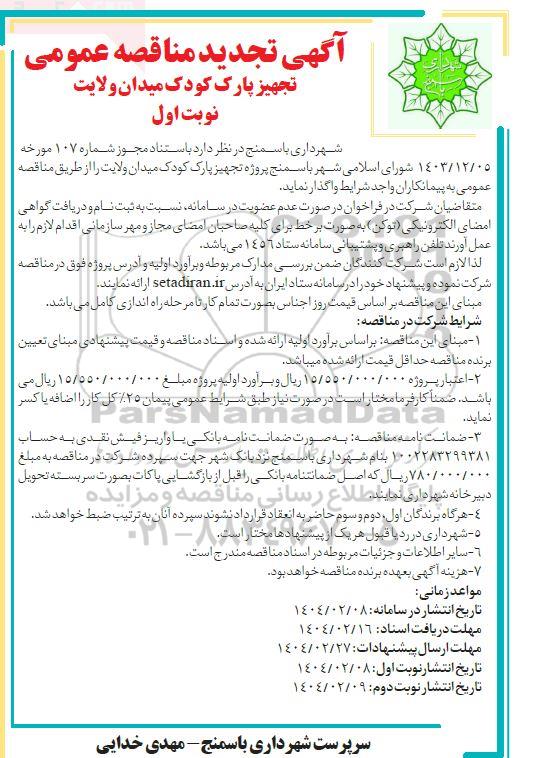 آگهی تجدید مناقصه عمومی
تجهیز پارک کودک میدان ولایت
نوبت اول
شهرداری باسمنج
شهرداری باسمنج در نظر دارد باستناد مجوز شماره ۱۰۷ مورخه
۱۴۰۳/۱۲/۰۵ شورای اسلامی شهر باسمنج پروژه تجهیز پارک کودک میدان ولایت را از طریق مناقصه
عمومی به پیمانکاران واجد شرایط واگذار نماید.
متقاضیان شرکت در فراخوان در صورت عدم عضویت در سامانه، نسبت به ثبت نام و دریافت گواهی
امضای الکترونیکی (توکن) به صورت برخط برای کلیه صاحبان امضای مجاز و مهر سازمانی اقدام لازم را به
عمل آورند تلفن راهبری و پشتیبانی سامانه ستاد ۱۴۵۶ می‌باشد.
لذا لازم است شرکت کنندگان ضمن بررسی مدارک مربوطه و برآورد اولیه و آدرس پروژه فوق در مناقصه
شرکت نموده و پیشنهاد خود را در سامانه ستاد ایران به آدرس setadiran.ir ارائه نمایند.
مبنای این مناقصه بر اساس قیمت روز اجناس بصورت تمام کار تا مرحله راه اندازی کامل می باشد.
شرایط شرکت در مناقصه:
۱-مبنای این مناقصه: بر اساس برآورد اولیه ارائه شده و اسناد مناقصه و قیمت پیشنهادی مبنای تعیین
برنده مناقصه حداقل قیمت ارائه شده میباشد.
۲-اعتبار پروژه ۱۵/۵۵۰/۰۰۰/۰۰۰ ریال و برآورد اولیه پروژه مبلغ ۱۵/۵۵۰/۰۰۰/۰۰۰ ریال می
باشد. ضمناً کارفرما مختار است در صورت نیاز طبق شرایط عمومی پیمان ۲۵٪ کل کار را اضافه یا کسر
نماید.
۳-ضمانت نامه مناقصه: به صورت ضمانت نامه بانکی یا واریز فیش نقدی به حساب
۱۰۰۲۲۸۳۲۹۹۳۸۱ بنام شهرداری باسمنج نزد بانک شهر جهت سپرده شرکت در مناقصه به مبلغ
۷۸۰/۰۰۰/۰۰۰ ریال که اصل ضمانتنامه بانکی را قبل از بازگشایی پاکات بصورت سربسته تحویل
دبیرخانه شهرداری نمایند.
۴-هرگاه برندگان اول، دوم و سوم حاضر به انعقاد قرارداد نشوند سپرده آنان به ترتیب ضبط خواهد شد.
۵-شهرداری در رد یا قبول هر یک از پیشنهادها مختار است.
۶-سایر اطلاعات و جزئیات مربوطه در اسناد مناقصه مندرج است.
۷-هزینه آگهی بعهده برنده مناقصه خواهد بود.
مواعد زمانی:
تاریخ انتشار در سامانه: ۱۴۰۴/۰۲/۰۸
مهلت دریافت اسناد: ۱۴۰۴/۰۲/۱۶
مهلت ارسال پیشنهادات: ۱۴۰۴/۰۲/۲۷
تاریخ انتشار نوبت اول: ۱۴۰۴/۰۲/۰۸
تاریخ انتشار نوبت دوم: ۱۴۰۴/۰۲/۰۹
سرپرست شهرداری باسمنج – مهدی خدایی
ParsNamadData
پایگاه اطلاع رسانی مناقصه و مزایده